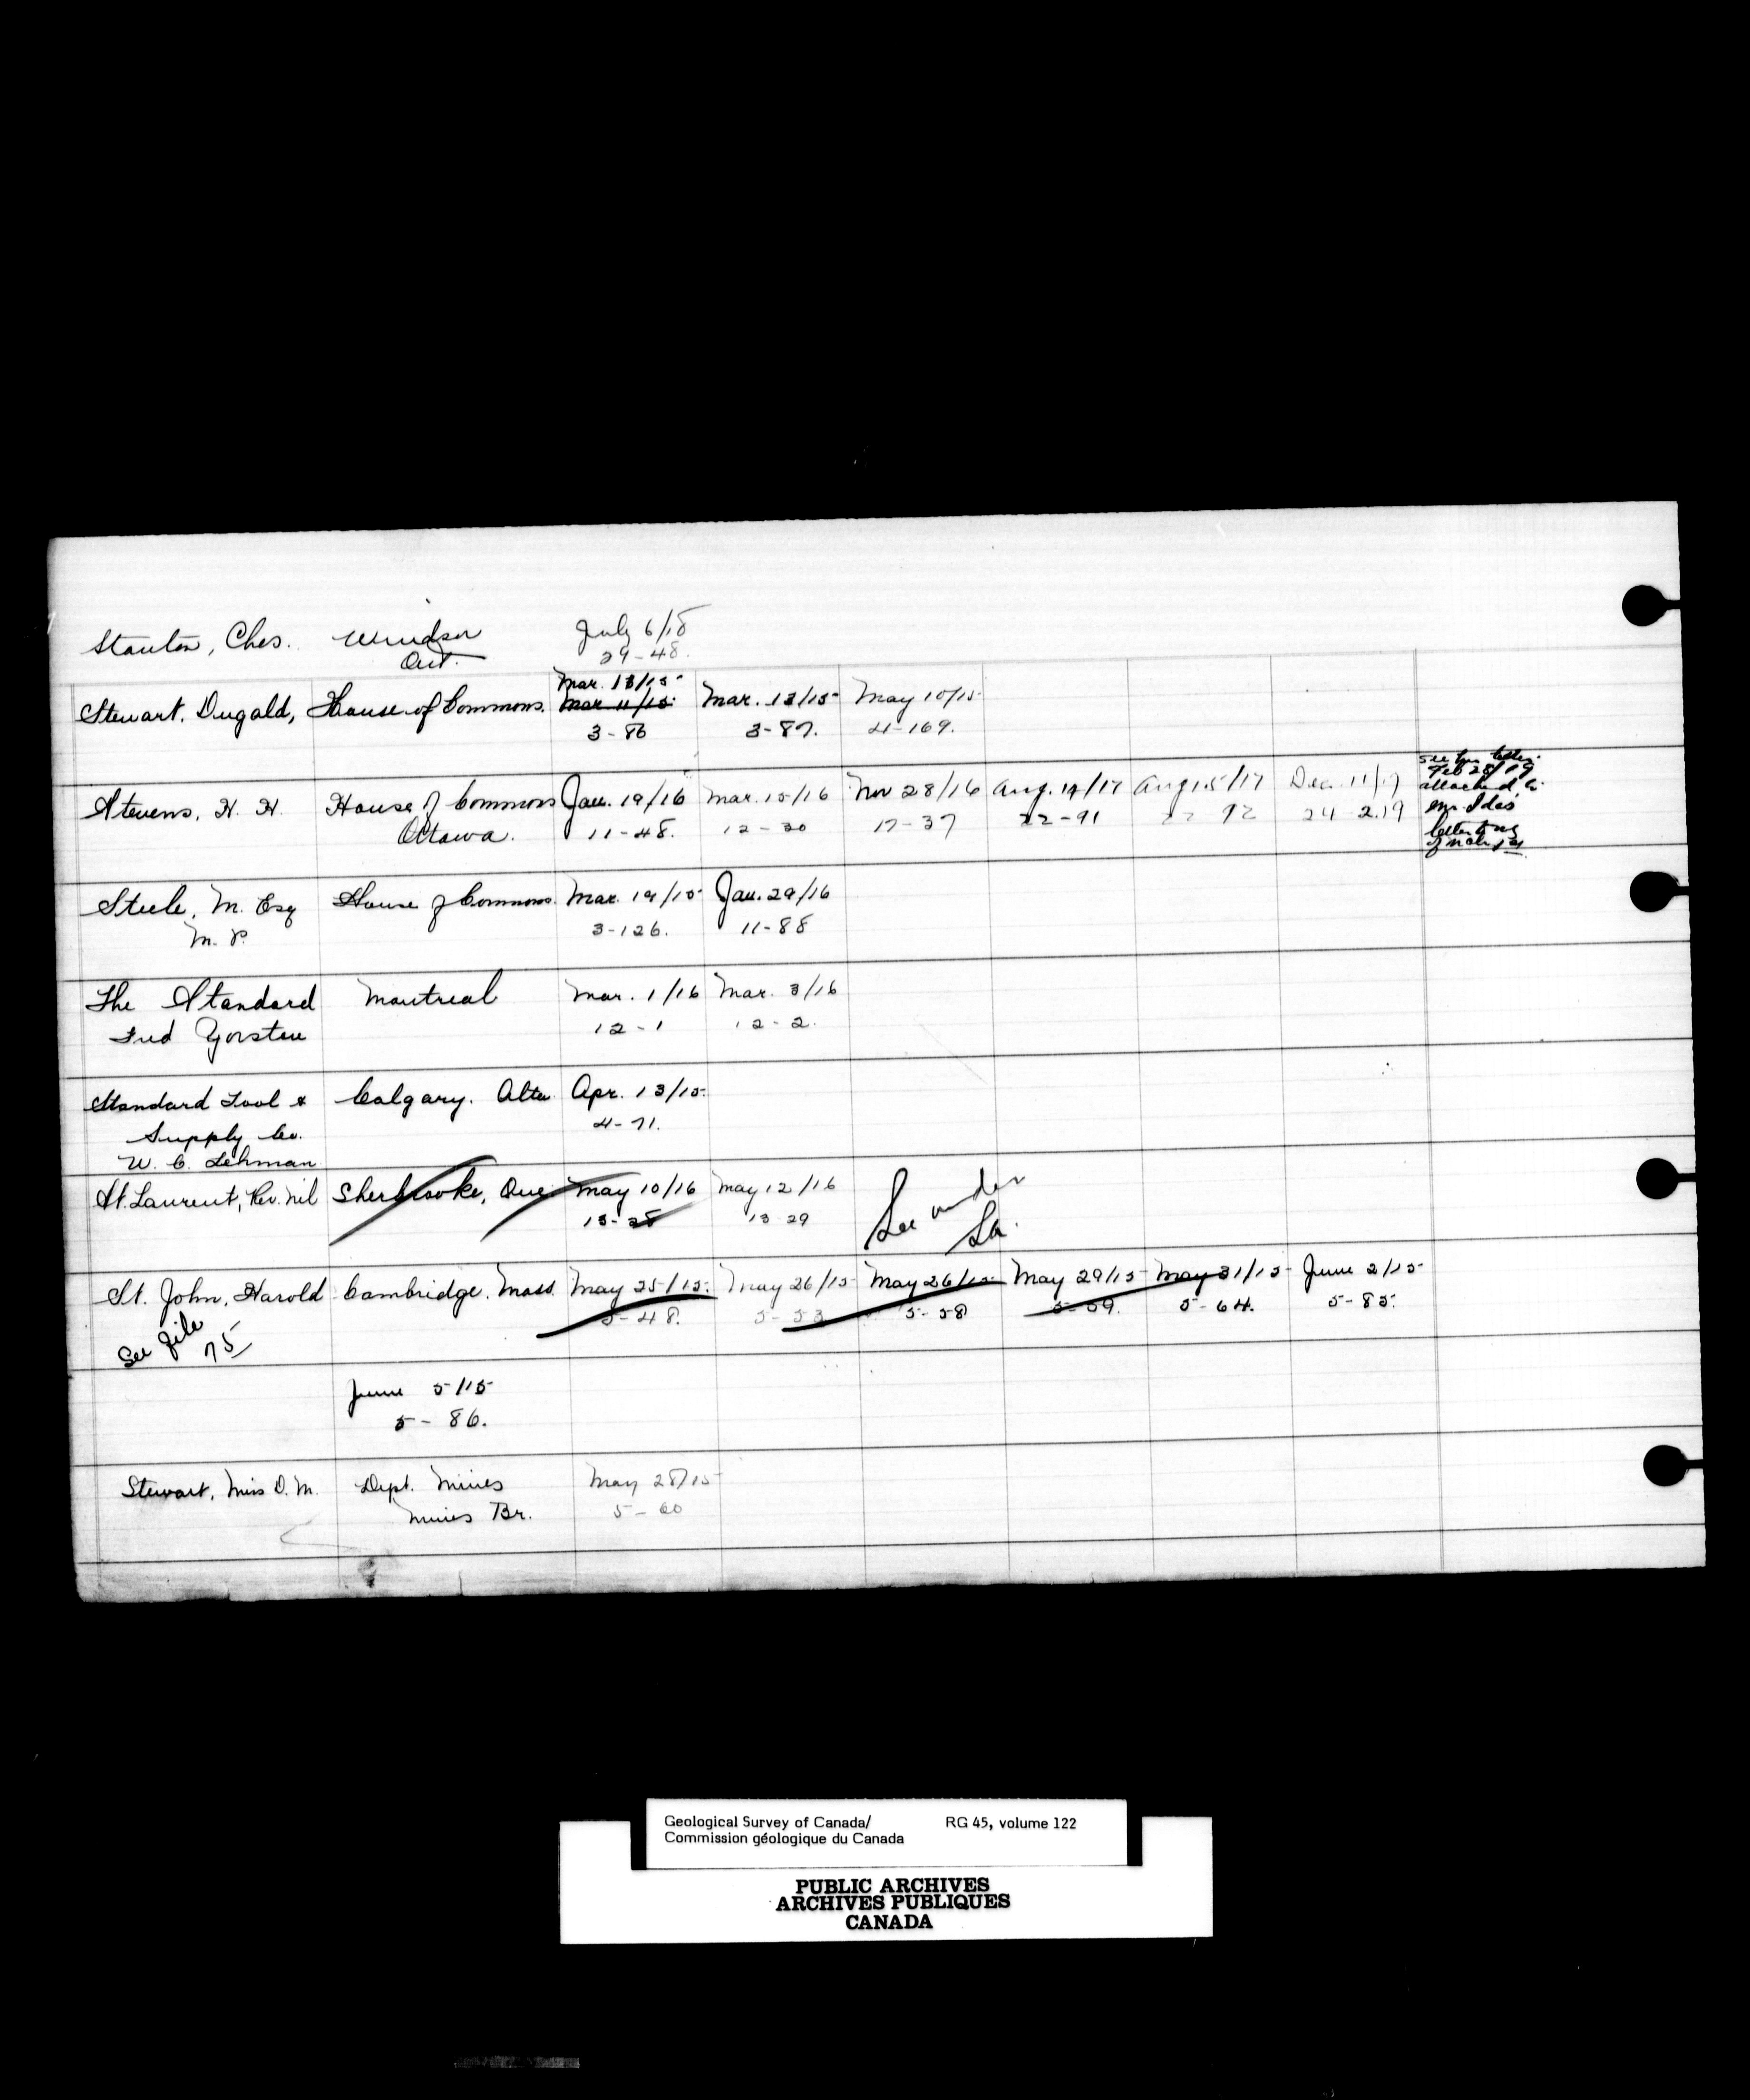 Stanton, Ches. Windsor July 6/18
Ont. 29-48.
Mar. 13/15
Stewart, Dugald, House of Commons. Mar 11/15 Mar. 13/15 May 10/15
3-86 3-87. 4-169.
Stevens, H. H. House of Commons Jan. 19/16 Mar. 15/16 Nov 28/16 Aug. 14/17 Aug 15/17 Dec. 11/17
Ottawa. 11-48. 12-30 17-37 22-91 22 92 24 219
See
Feb 28/19
attached
Steele, M. Esq House of Commons. Mar. 19/15 Jan. 29/16
M. P. 3-126. 11-88
The Standard Montreal Mar. 1/16 Mar. 3/16
Fred Yorston 12-1 12-2.
Standard Tool & Calgary. Alta Apr. 13/15.
Supply Co. 4-71.
W. C. Lehman
St. Laurent, Rev. Nil Sherbrooke, Que May 10/16 May 12/16 See under
13-28 13 29 La.
St. John, Harold Cambridge. Mass. May 25/15. May 26/15 May 26/15 May 29/15 May 31/15 June 2/15
5-48. 5-53 5-58 5-59. 5-64. 5-85.
See file
75
June 5/15
5-86.
Stewart, Miss D. M. Dept. Mines May 28/15
Mines Br. 5-60
Geological Survey of Canada/ RG 45, volume 122
Commission géologique du Canada
PUBLIC ARCHIVES
ARCHIVES PUBLIQUES
CANADA